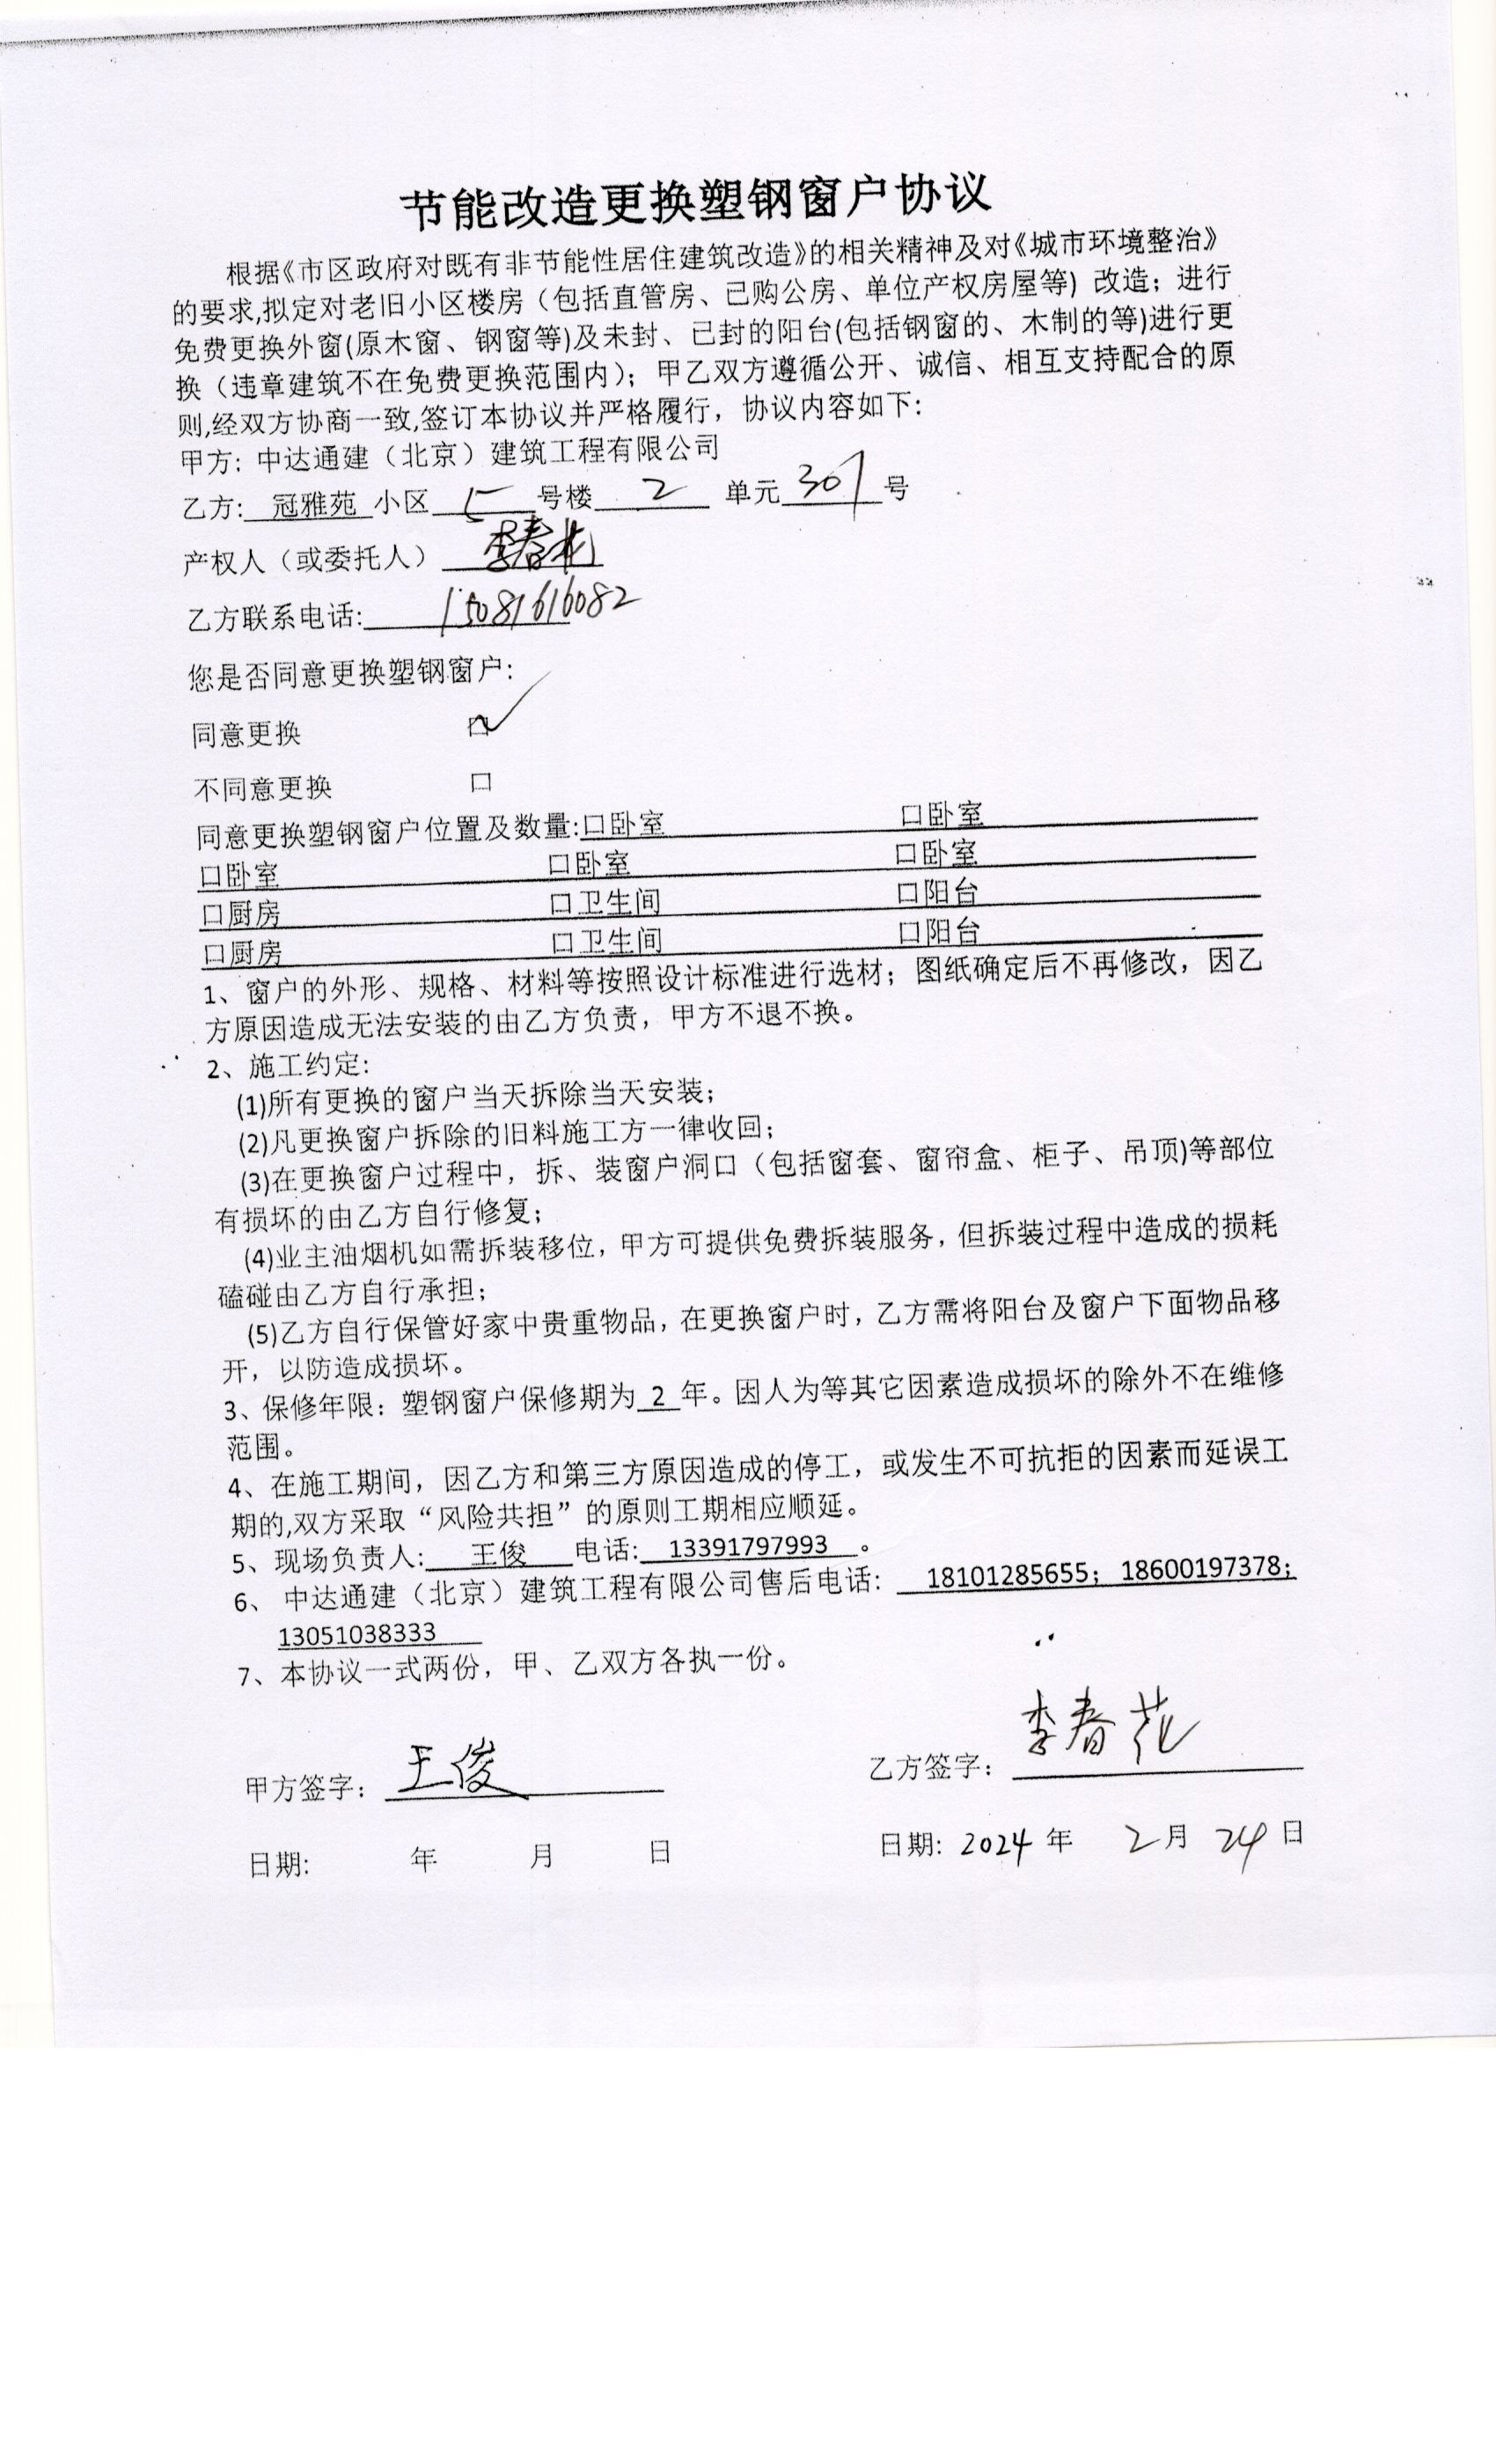 节能改造更换塑钢窗户协议
根据《市区政府对既有非节能性居住建筑改造》的相关精神及对《城市环境整治》
的要求,拟定对老旧小区楼房（包括直管房、已购公房、单位产权房屋等）改造；进行
免费更换外窗(原木窗、钢窗等)及未封、已封的阳台(包括钢窗的、木制的等)进行更
换（违章建筑不在免费更换范围内）；甲乙双方遵循公开、诚信、相互支持配合的原
则,经双方协商一致,签订本协议并严格履行，协议内容如下：
甲方：中达通建（北京）建筑工程有限公司
乙方: 冠雅苑 小区 5 号楼 2 单元 301 号
产权人（或委托人） 李春花
乙方联系电话: 15081616082
您是否同意更换塑钢窗户：
同意更换 口✓
不同意更换 口
同意更换塑钢窗户位置及数量:口卧室 口卧室
口卧室 口卧室 口卧室
口厨房 口卫生间 口阳台
口厨房 口卫生间 口阳台
1、窗户的外形、规格、材料等按照设计标准进行选材；图纸确定后不再修改，因乙
方原因造成无法安装的由乙方负责，甲方不退不换。
2、施工约定：
(1)所有更换的窗户当天拆除当天安装；
(2)凡更换窗户拆除的旧料施工方一律收回；
(3)在更换窗户过程中，拆、装窗户洞口（包括窗套、窗帘盒、柜子、吊顶)等部位
有损坏的由乙方自行修复；
(4)业主油烟机如需拆装移位，甲方可提供免费拆装服务，但拆装过程中造成的损耗
磕碰由乙方自行承担；
(5)乙方自行保管好家中贵重物品，在更换窗户时，乙方需将阳台及窗户下面物品移
开，以防造成损坏。
3、保修年限：塑钢窗户保修期为 2 年。因人为等其它因素造成损坏的除外不在维修
范围。
4、在施工期间，因乙方和第三方原因造成的停工，或发生不可抗拒的因素而延误工
期的,双方采取“风险共担”的原则工期相应顺延。
5、现场负责人: 王俊 电话: 13391797993 。
6、 中达通建（北京）建筑工程有限公司售后电话: 18101285655；18600197378；
13051038333
7、本协议一式两份，甲、乙双方各执一份。
甲方签字： 王俊 乙方签字： 李春花
日期: 年 月 日 日期: 2024 年 2 月 24 日